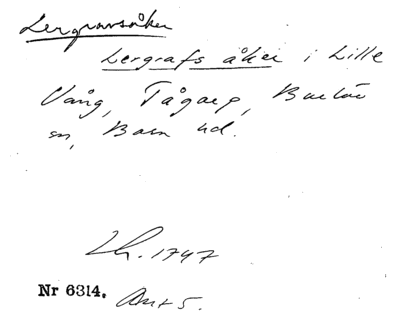 Lergravsåker
Lergrafs åker i Lille
Vång, Tågarp,
sn, Bara hd.
Lh. 1747
Nr 6314. Ant 5.